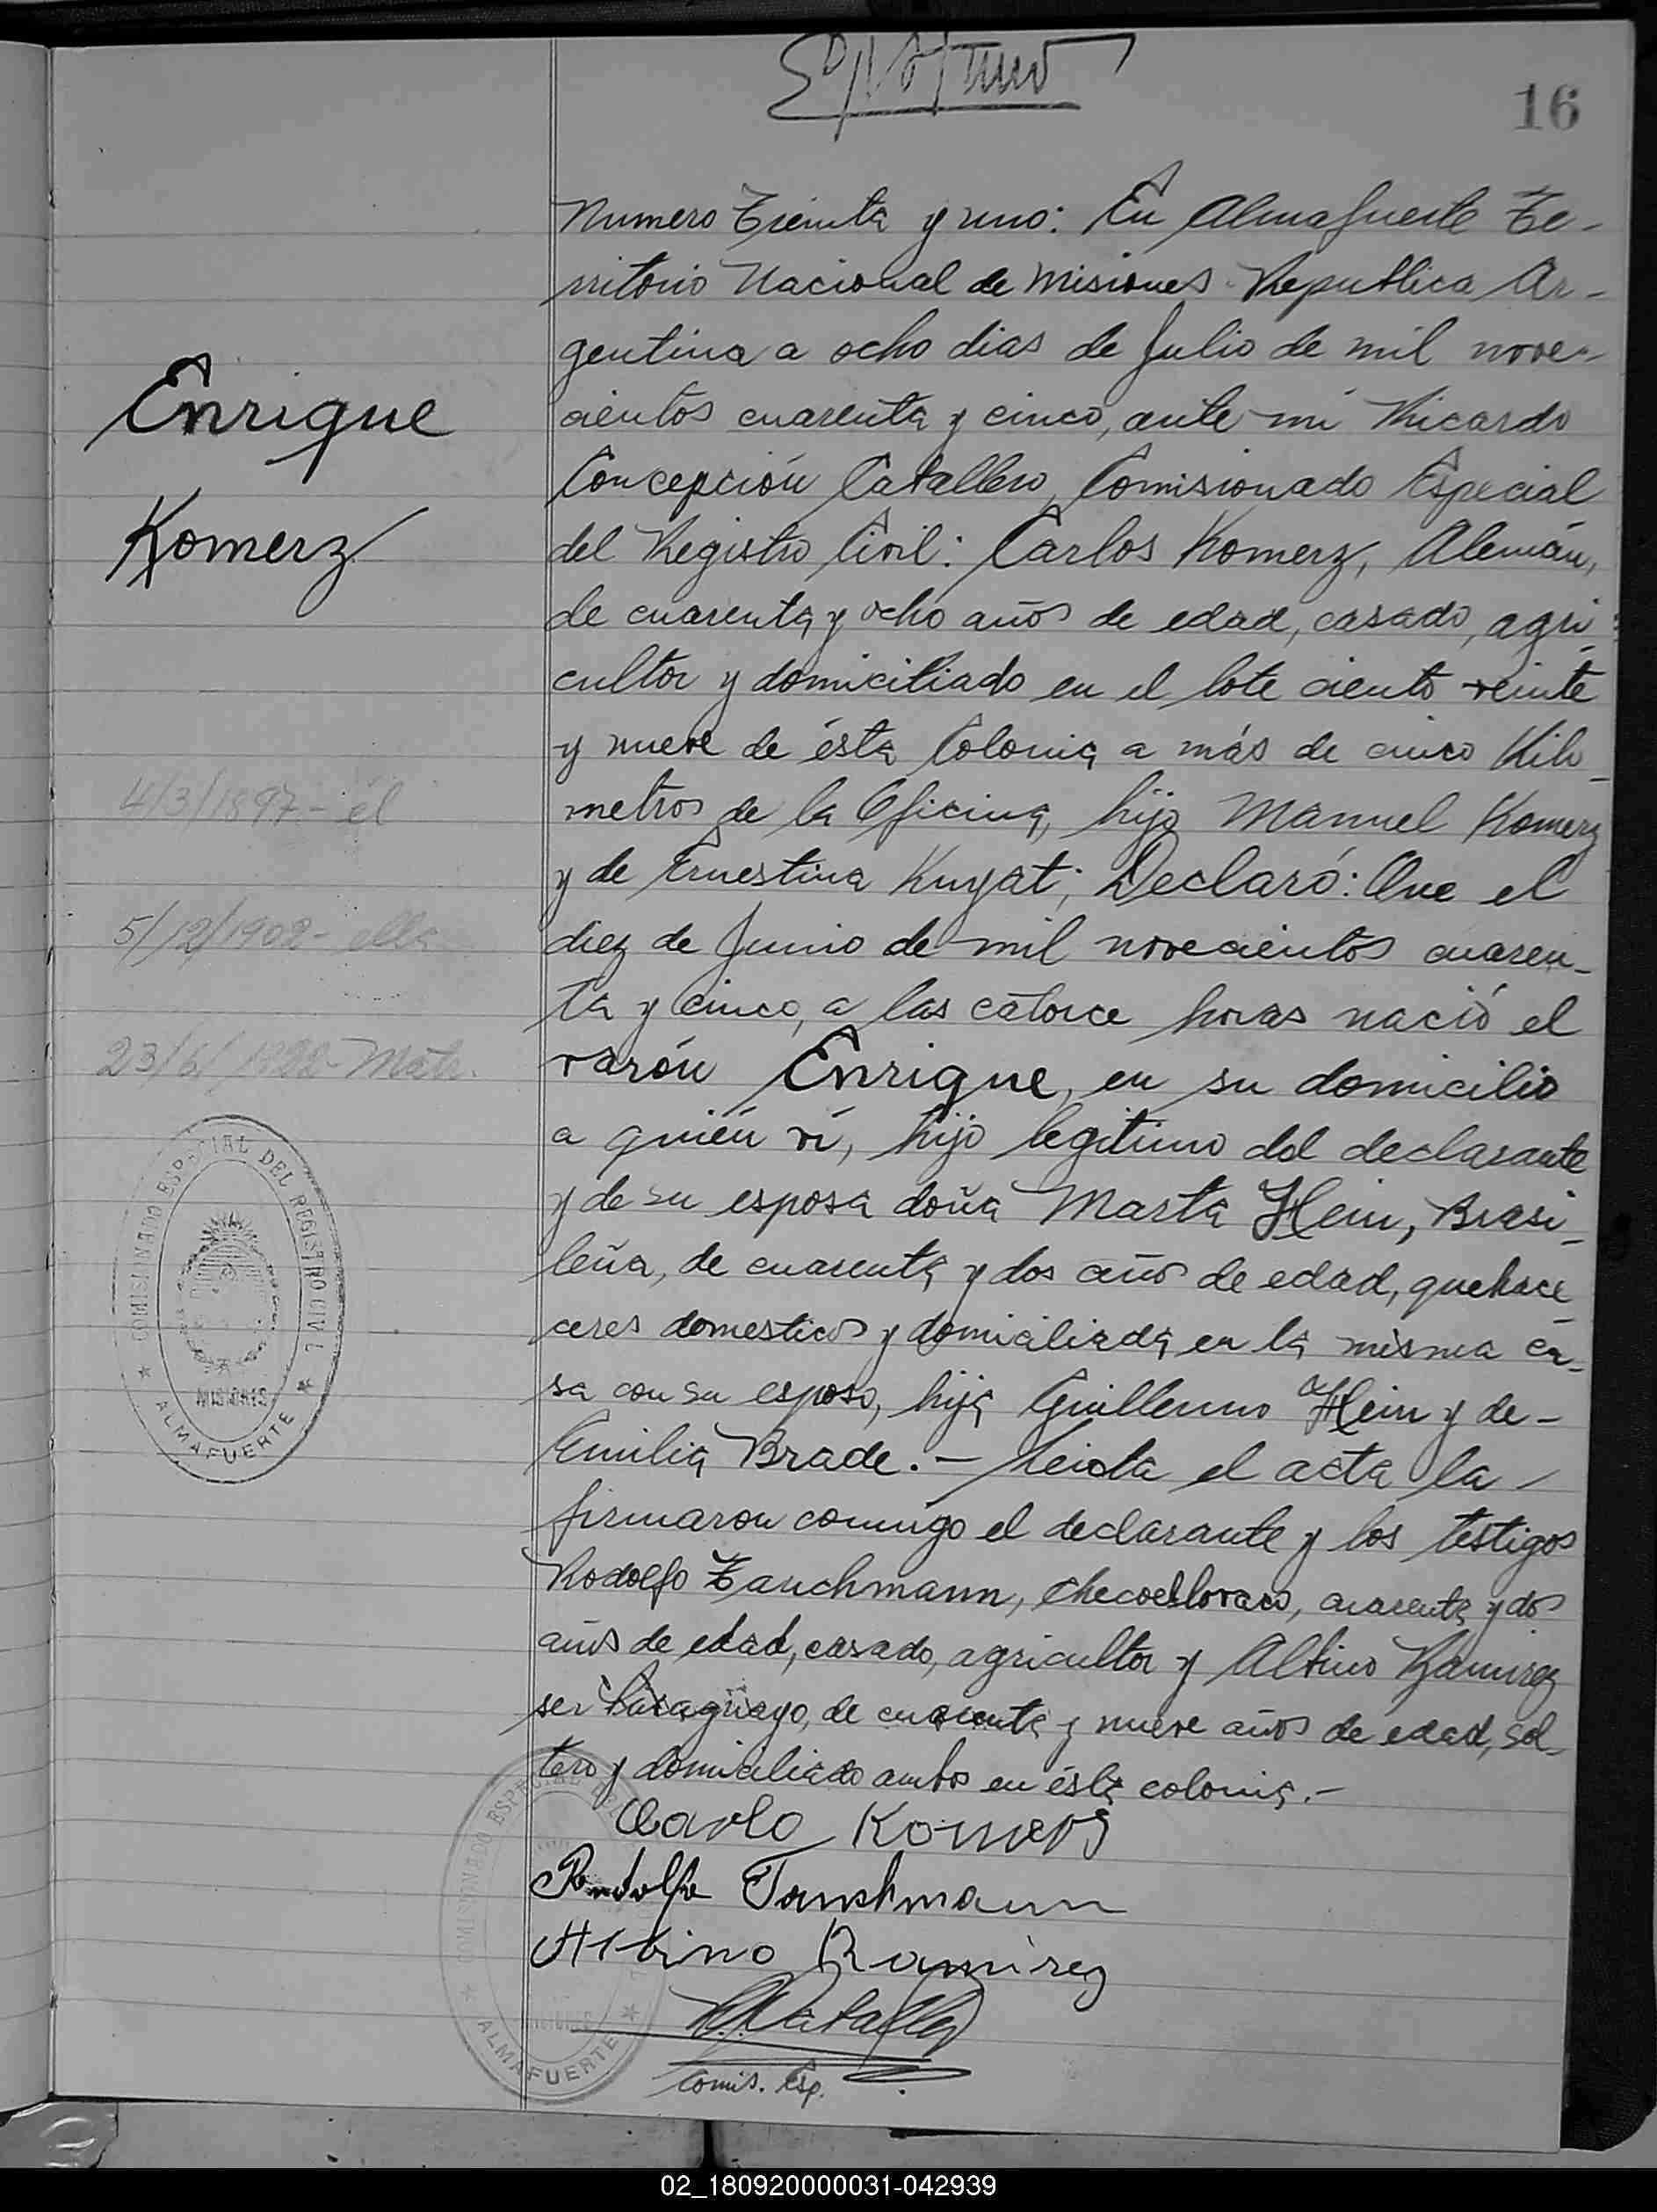 16
Numero Treinta y uno: En Almafuerte Te-
rritorio Nacional de Misiones Republica Ar-
gentina a ocho dias de Julio de mil nove-
cientos cuarenta y cinco, ante mi Ricardo
Concepción Caballero, Comisionado Especial
del Registro Civil: Carlos Komerz, Alemán,
de cuarenta y ocho años de edad, casado, agri-
cultor y domiciliado en el lote ciento veinte
y nueve de ésta Colonia a más de cinco Kilo-
metros de la Oficina, hijo Manuel Komerz
y de Ernestina Kuyat; Declaró: Que el
diez de Junio de mil novecientos cuaren-
ta y cinco, a las catorce horas nació el
varón Enrique, en su domicilio
a quién ví, hijo legitimo del declarante
y de su esposa doña Marta Hein, Brasi-
leña, de cuarenta y dos años de edad, quehace-
ceres domesticos y domiciliada en la misma ca-
sa con su esposo, hija Guillermo Hein y de-
Emilia Brade.- Leida el acta la
firmaron conmigo el declarante y los testigos
Rodolfo Tauchmann, Checoesllovaco, cuarenta y dos
años de edad, casado, agricultor y Albino Ramirez
ser Paraguayo, de cuarenta y nueve años de edad, sol-
tero y domiciliado ambos en ésta colonia.-
Carlo Komerz
Rudolf Tauchmann
Albino Ramirez
R. Caballero
Comis. Esp.
Enrique
Komerz
4/3/1897- él
5/12/1902- ella
23/6/1922- Matr.
COMISIONADO ESPECIAL DEL REGISTRO CIVIL
MISIONES
ALMAFUERTE
COMISIONADO ESPECIAL DEL
ALMAFUERTE
02_180920000031-042939